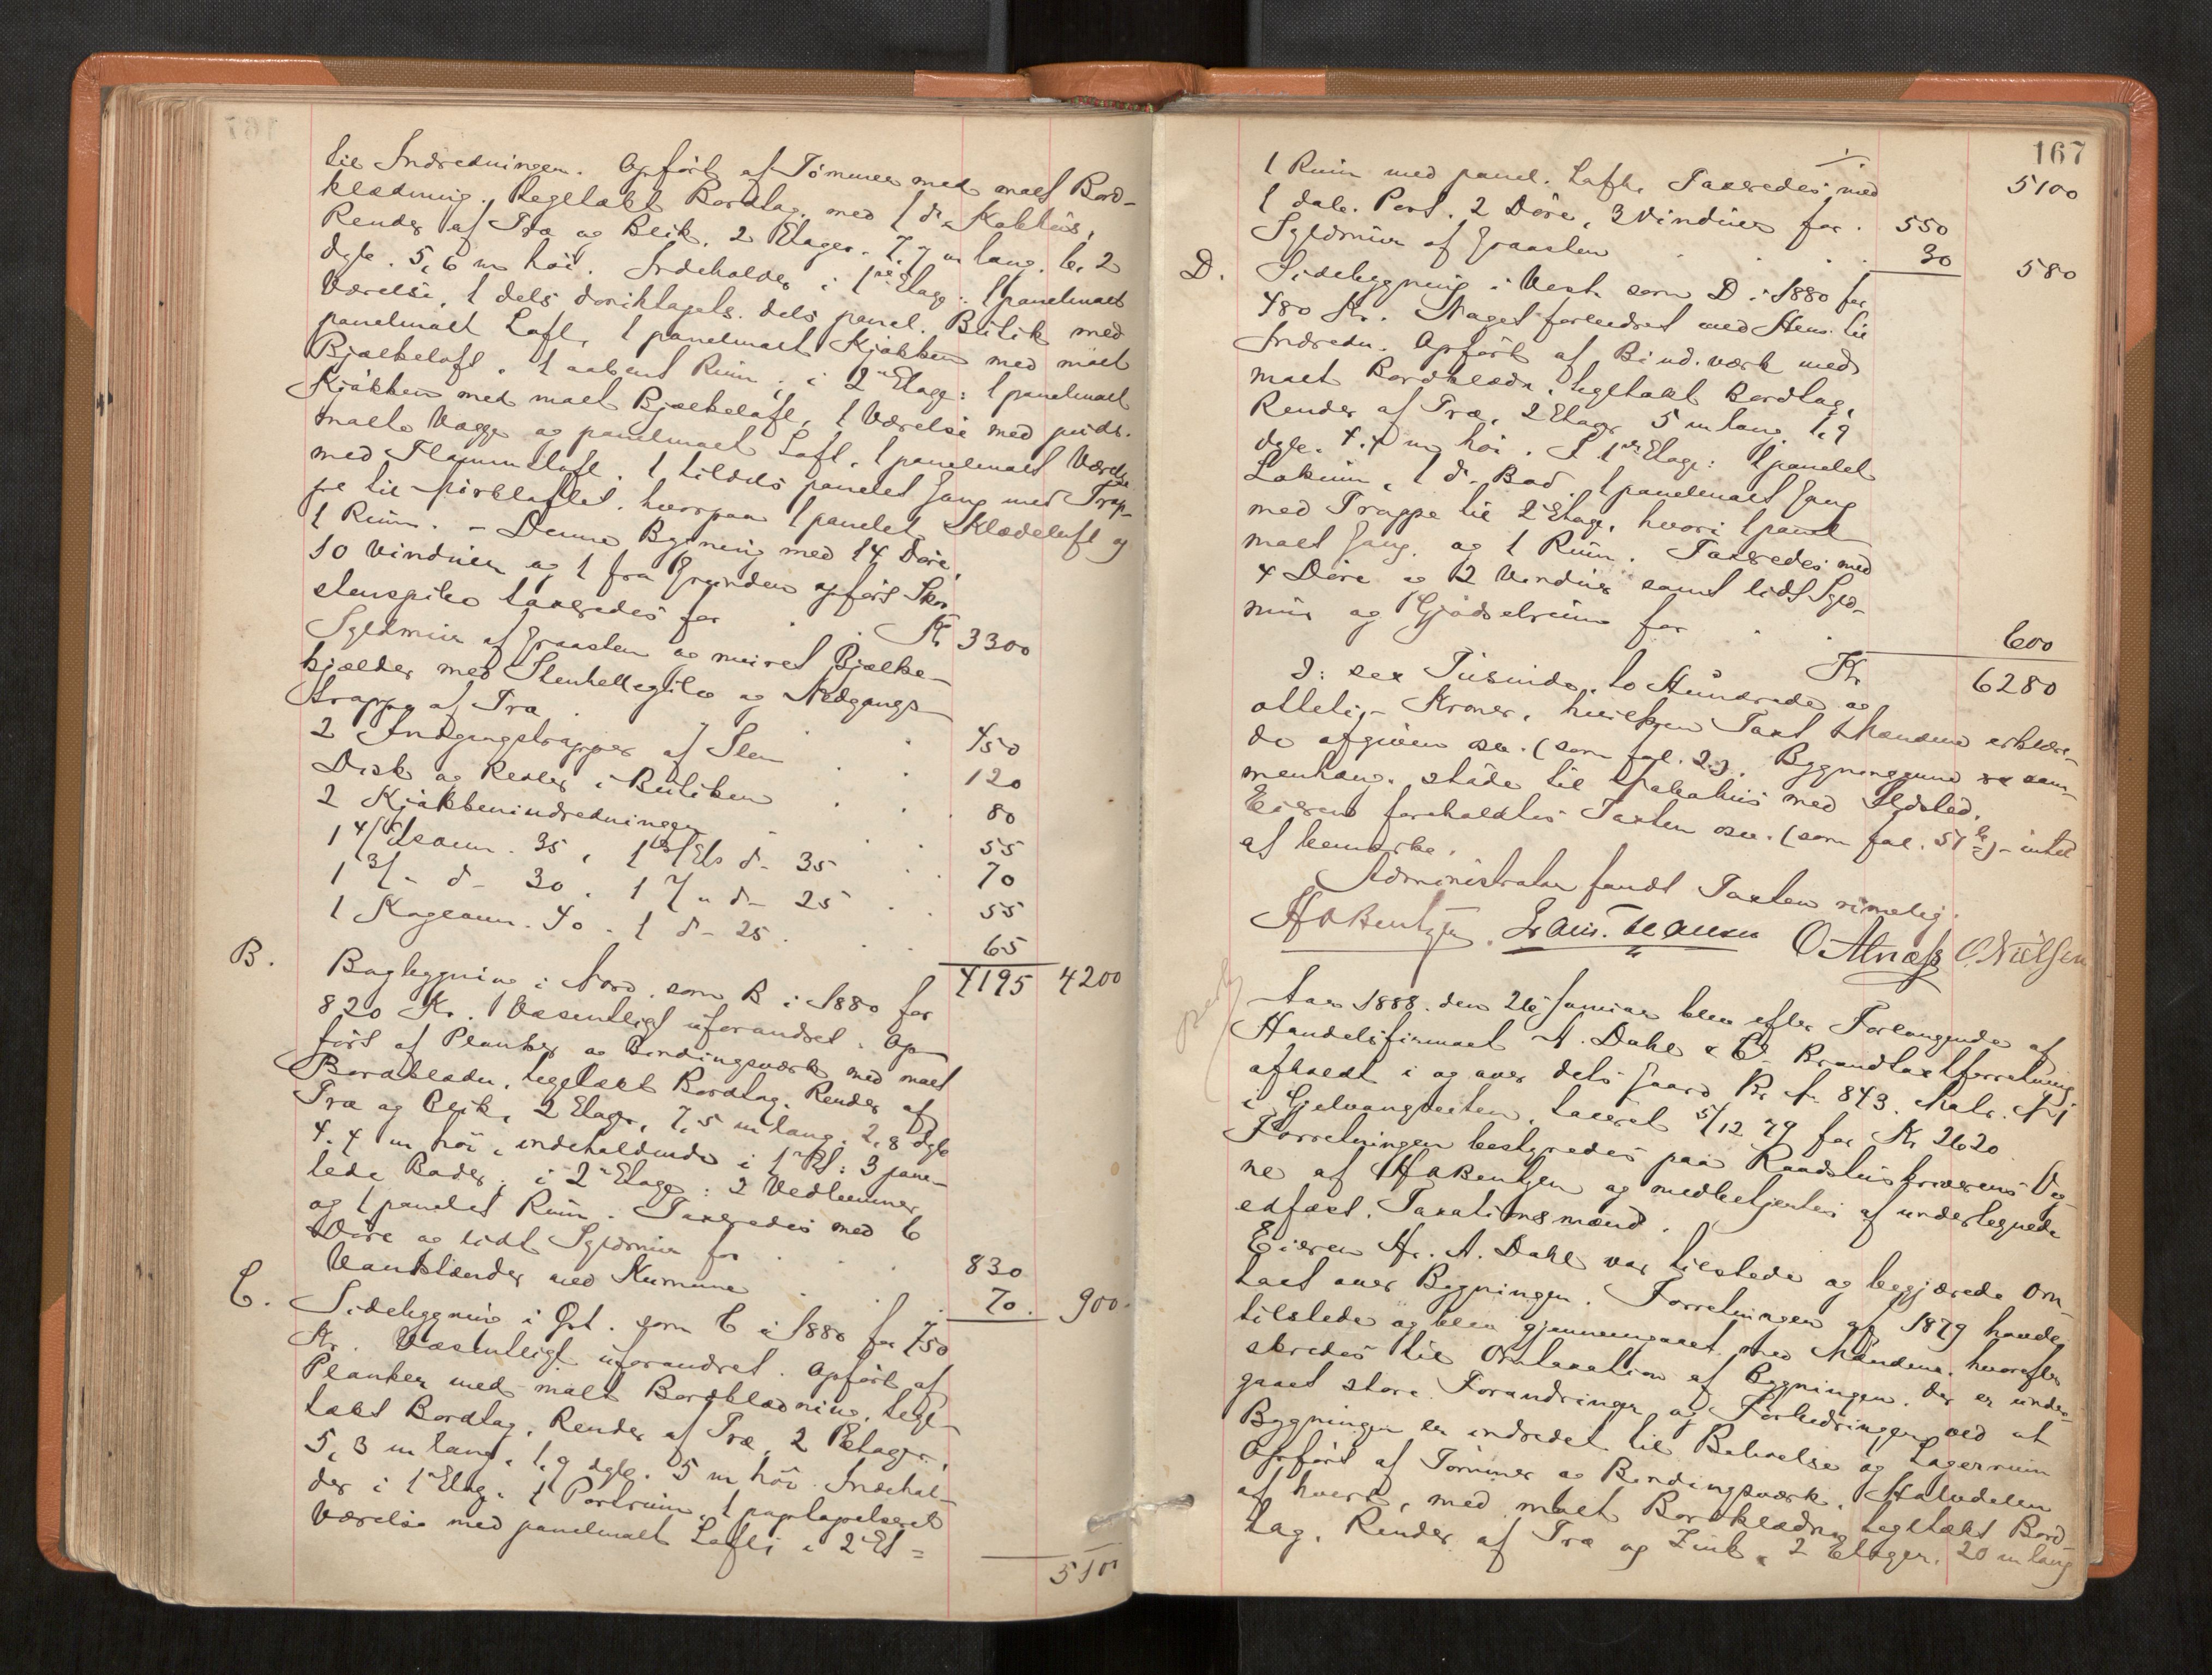 til Indredningen. Opført af Tømmer med malt Bord-
klædning. tegltækt Bordtag, med 1 do
Render af Træ og Blik. 2 Etager. 7,7 m lang. 6,2
dybt. 5,6 m høi. Indeholder i 1ste Etage: 1 panelmalt
Værelse, 1 dels dels panel. Butik med
panelmalt Loft, 1 panelmalt Kjøkken med malt
Bjælkeloft. 1 aabent Rum; i 2n Etage: 1 panelmalt
Kjøkken med malt Bjælkeloft, 1 Værelse med puds.
malte Vægge og panelmalt Loft. 1 panelmalt Værelse
med Loft. 1 tildels panelet Gang med Trap-
pe til hvorpaa 1 panelet Klædeloft og
1 Rum. – Denne Bygning med 14 Døre,
10 Vinduer og 1 fra Grunden opført Skor
stenspibe taxeredes for . . Kr 3300
Syldmur af Graasten og muret Bjælke-
kjælder med Stenhellegulv og Nedgangs-
trappe af Træ . . . 450
2 Indgangstrapper af Sten . . 120
Disk og Reoler i Butiken . . 80
2 Kjøkkenindredninger . . 55
1 4/Etsovn. 35, 1 Ets do 35 . . 70
1 3/" do 30. 1 " do 25 . . 55
1 Kogeovn. 40. 1 do 25 . . 65
4195 4200
B. Bagbygning i Nord. som B i 1880 for
820 Kr. Væsentligt uforandret. Op-
ført af Planker og Bindingsværk med malt
Bordklædn. tegltækt Bordtag. Render af
Træ og Blik, 2 Etager, 7,5 m lang. 2,8 dybt
4,4 m høi, indeholdende i 1n Et: 3 pane-
lede Boder; i 2n Etage: 2 Vedlemmer
og 1 panelet Rum. Taxeredes med 6
Døre og lidt Syldmur for . . . 830
Vandstænder med Kumme . . 70. 900.
C. Sidebygning i Øst. som C i 1880 for 750
Kr. Væsentligt uforandret. Opført af
Planker med malt Bordklædning, tegl-
tækt Bordtag, Render af Træ, 2 Etager,
5,3 m lang, 1,9 dybt. 5 m høi. Indehol-
der i 1n Etag. 1 Portrum, 1 paptapetseret
Værelse med panelmalt Loft; i 2n Et=
5100
167
1 Rum med panel. Loft. Taxeredes med 5100
1 dob. Port. 2 Døre, 3 Vinduer for . 550
Syldmur af Graasten . . . 30 580
D. Sidebygning i Vest som D i 1880 for
480 Kr. Noget forbedret med Hens. til
Indredn. Opført af Bind.værk med
malt Bordklædn. tegltækt Bordtag,
Render af Træ, 2 Etager 5 m lang. 1,9
dybt. 4,4 m høi. I 1ste Etage: 1 panelet
Lokum, 1 do Bod. 1 panelmalt Gang
med Trappe til 2n Etage, hvori 1 panel
malt Gang. og 1 Rum. Taxeredes med
4 Døre og 2 Vinduer samt lidt Syld-
mur og Gjødselrum for . . 600
Kr 6280
ɔ: sex Tusinde, to Hundrede og
otteti – Kroner, hvilken Taxt Mændene erklære-
de afgiven osv. (som fol. 2.). Bygningerne sam-
menhæng. støde til Vaskehus med Ildsted.
Eieren foreholdtes Taxten osv. (som fol. 51b) – intet
at bemærke.
Administrator fandt Taxten rimelig.
HABentzen. O. Alnæs O. Nielsen
Aar 1888. den 26 Januar blev efter Forlangende af
Handelsfirmaet A. Dahl & Co Brandtaxtforretning
afholdt i og over dets Gaard Br. No. 843. Matr. No 1
i Gjelvangveiten, taxeret 5/12 79 for Kr. 2620.
Forretningen bestyredes paa Raadstuskriverens Veg-
ne af HABentzen og medbetjentes af undertegnede
edfæst. Taxationsmænd.
Eieren Hr. A. Dahl var tilstede og begjærede Om-
taxt over Bygningen. Forretningen af 1879 havdes
tilstede og blev gjennemgaaet med Mændene, hvorefter
skredes til Omtaxation af Bygningen, der er under-
gaaet store Forandringer og Forbedringer ved at
Bygningen er indredet til Beboelse og Lagerrum
Opført af Tømmer og Bindingsværk, Halvdelen
af hvert, med malt Bordklædning tegltækt Bord-
tag. Render af Træ og Zink, 2 Etager. 20 m lang